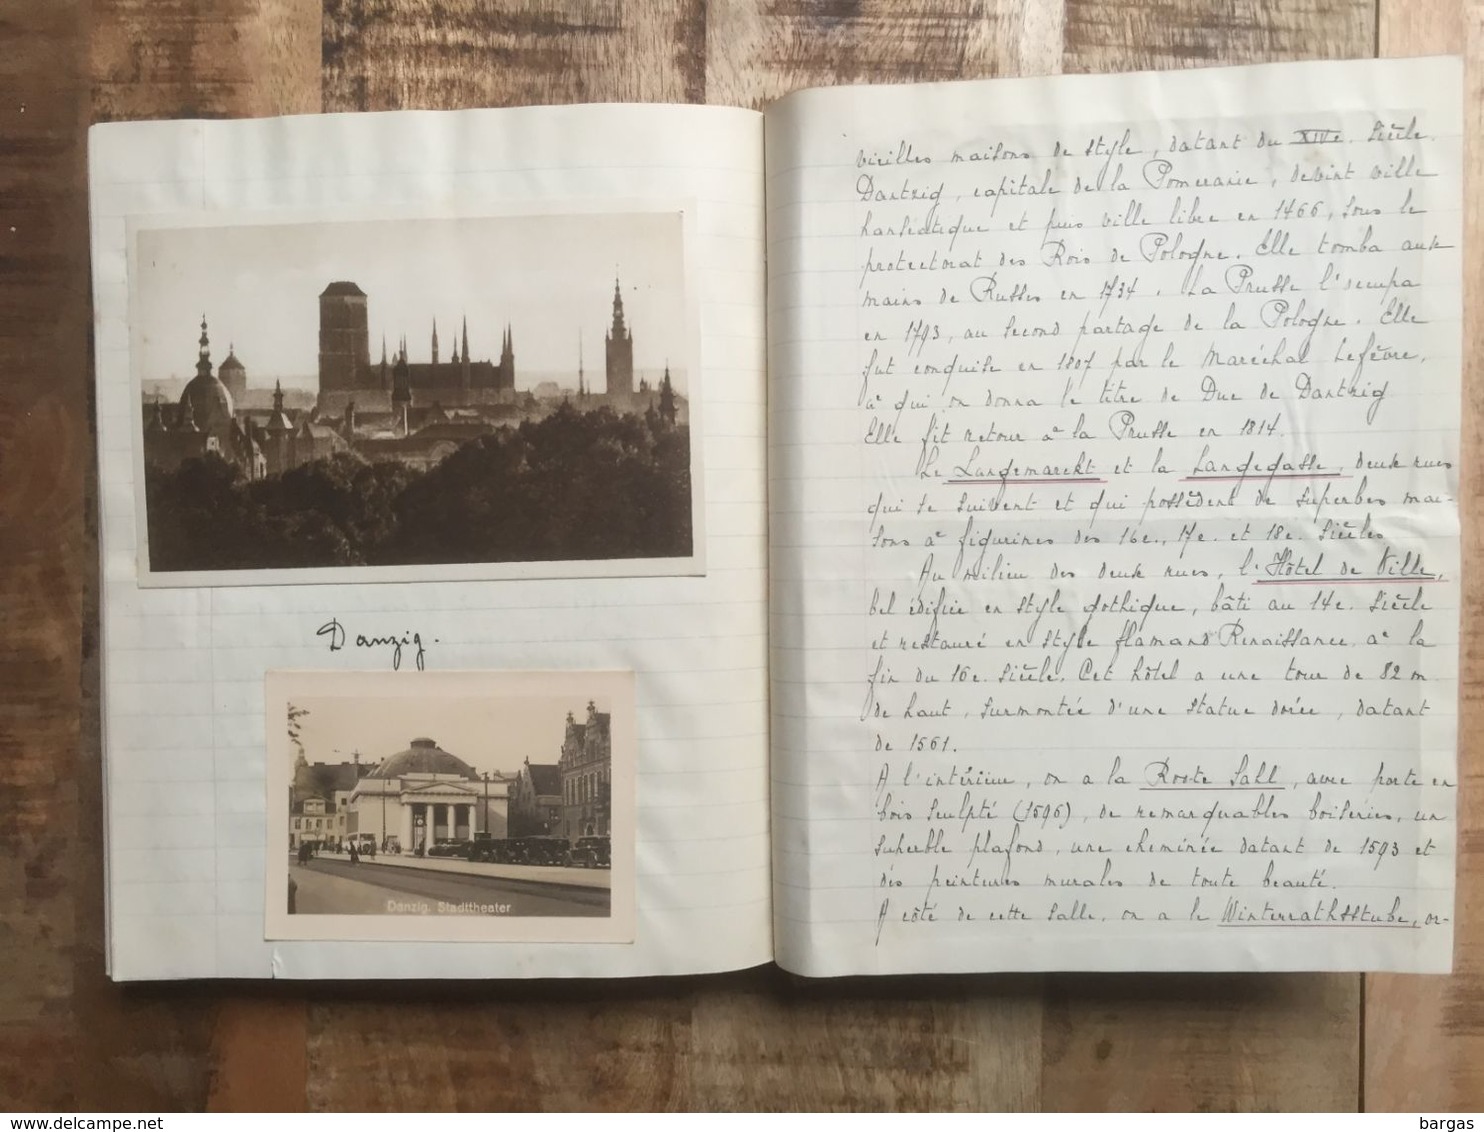 Danzig.
Danzig. Stadttheater
vieilles maisons de style, datant du XIVe. siècle.
Dantzig, capitale de la Pomeranie, devint ville
hanséatique et puis ville libre en 1466, sous le
protectorat des Rois de Pologne. Elle tomba aux
mains de Russes en 1734. La Prusse l'occupa
en 1793, au second partage de la Pologne. Elle
fut conquise en 1807 par le Maréchal Lefèvre,
à qui on donna le titre de Duc de Dantzig
Elle fit retour à la Prusse en 1814.
Le Langemarckt et la Langegasse, deux rues
qui se suivent et qui possèdent de superbes mai-
sons à figurines des 16e., 17e. et 18e. siècles
Au milieu des deux rues, l'Hôtel de Ville,
bel édifice en style gothique, bâti au 14e. siècle
et restauré en style flamand Renaissance à la
fin du 16e. siècle. Cet hôtel a une tour de 82 m
de haut, surmontée d'une statue dorée, datant
de 1561.
A l'intérieur, on a la Roote Sall, avec porte en
bois sculpté (1596), de remarquables boiseries, un
superbe plafond, une cheminée datant de 1593 et
dés peintures murales de toute beauté.
A côté de cette salle, on a le Winterrathsstube, or-
delcampe.net
bargas